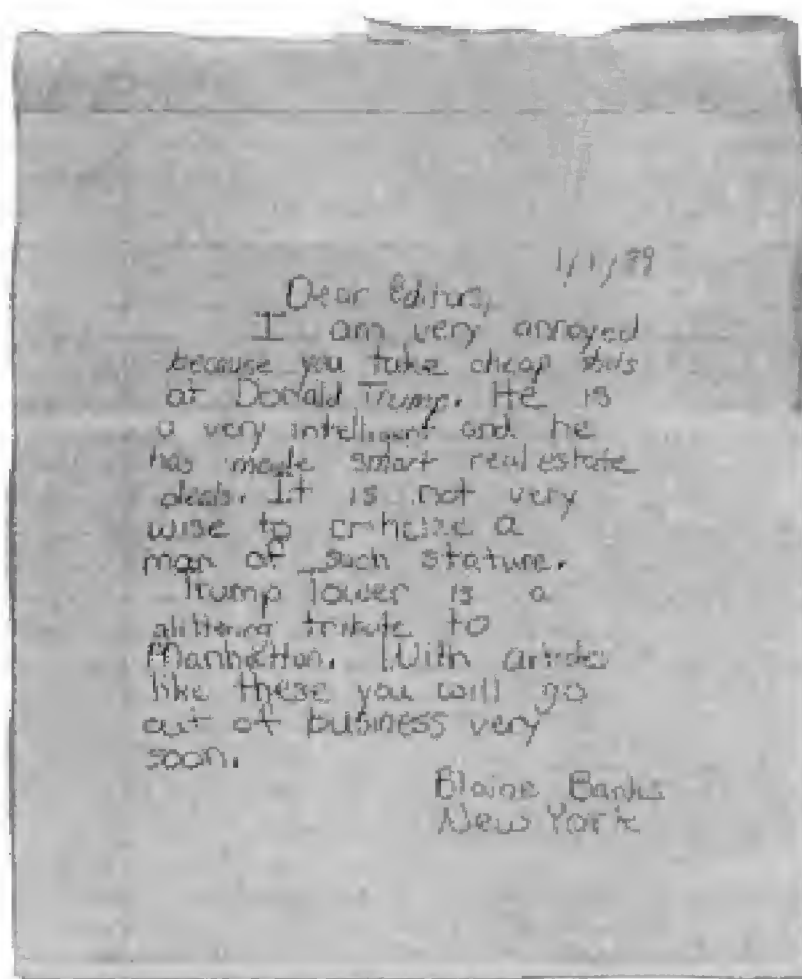 1/1/89
Dear Editors,
I am very annoyed
because you take cheap shots
at Donald Trump. He is
a very intelligent and he
has made smart real estate
deals. It is not very
wise to criticize a
man of such stature.
Trump Tower is a
glittering tribute to
Manhattan. With articles
like these you will go
out of business very
soon.
Blaine Banks
New York